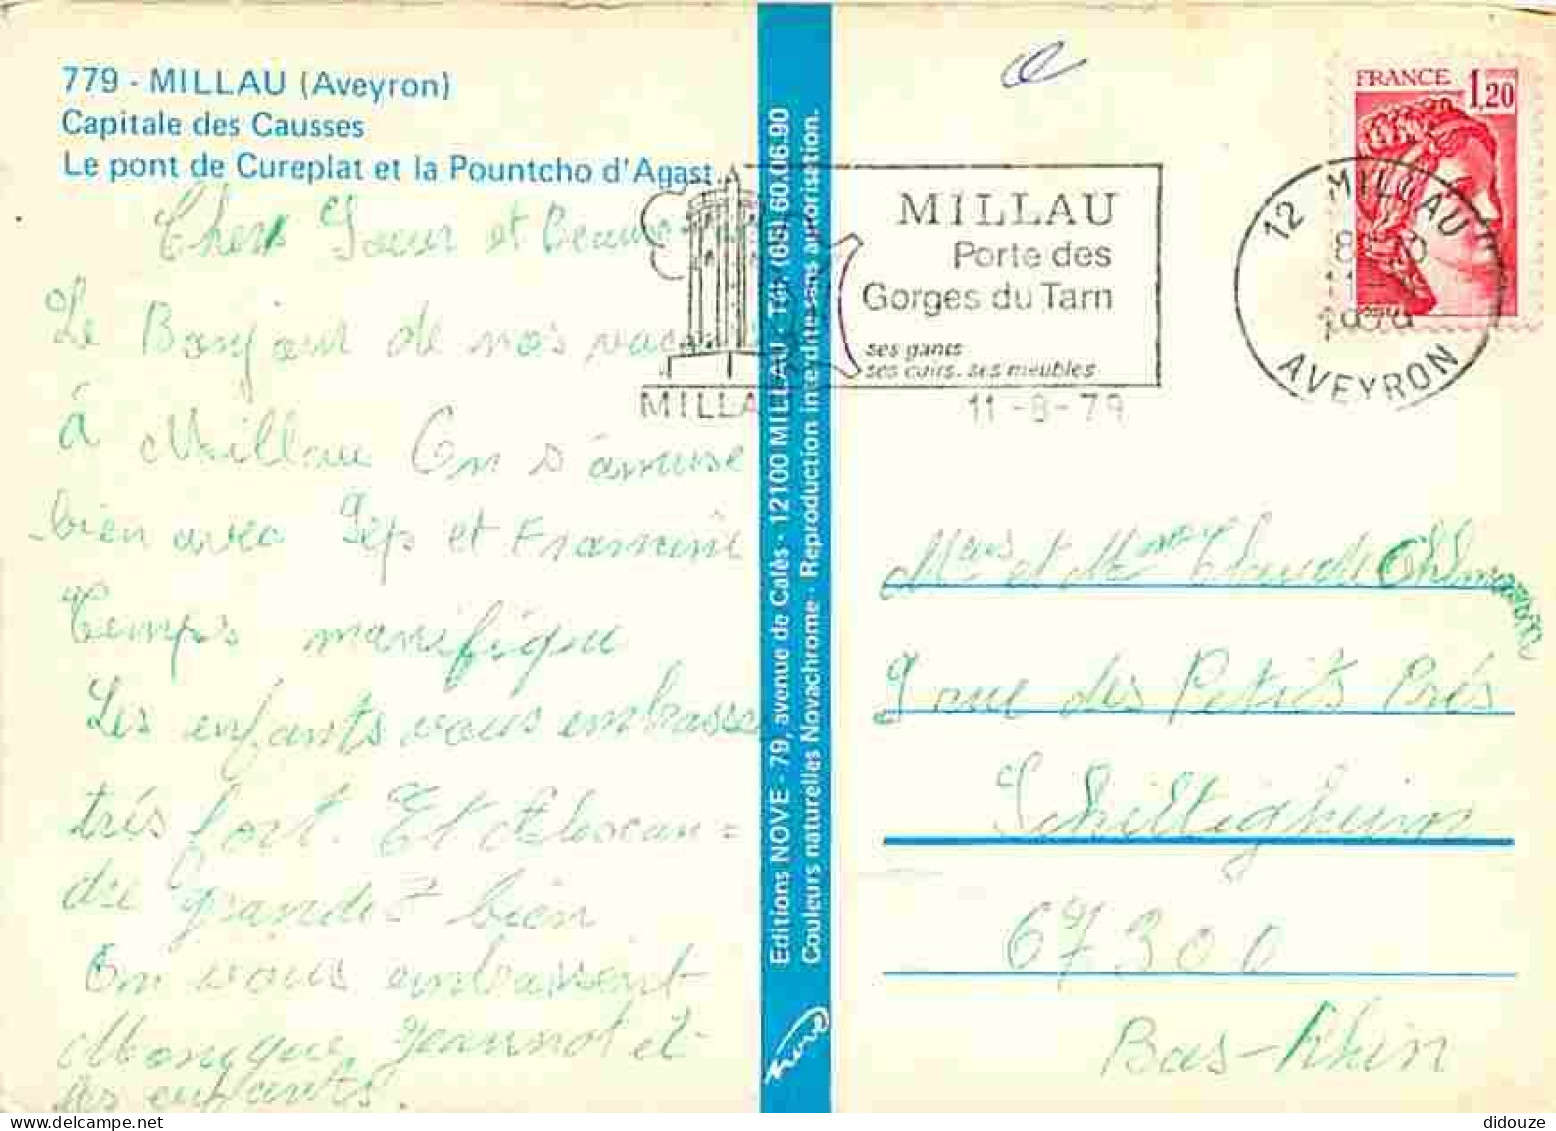 779 - MILLAU (Aveyron)
Capitale des Causses
Le pont de Cureplat et la Pountcho d'Agast
Chers Soeur et Beau
Le Bonjour de nos vacan
à Millau On s'amuse
bien avec Pép et Francine
Temps manifique
Les enfants vous embrasse
très fort. Et Alexan=
dre grandit bien
On vous embrassent
Monique, Jeannot et
les enfants.
Editions NOVE - 79, avenue de Calès - 12100 MILLAU - Tél. (65) 60.06.90
Couleurs naturelles Novachrome - Reproduction interdite sans autorisation.
nove
MILLAU
MILLAU
Porte des
Gorges du Tarn
ses gants
ses cuirs, ses meubles
11-8-79
FRANCE 1,20
12 MILLAU
11-8
1979
AVEYRON
et Mme Claude
9 rue des Petits Prés
Schiltigheim
67300
Bas-Rhin
didouze